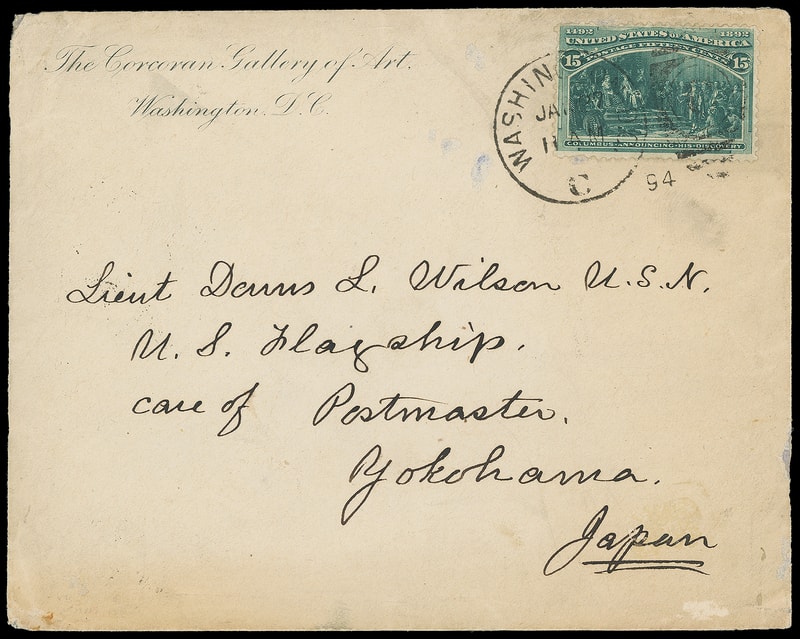 The Corcoran Gallery of Art,
Washington, D.C.
1492 1892
UNITED STATES OF AMERICA
POSTAGE FIFTEEN CENTS
15 15
COLUMBUS ANNOUNCING HIS DISCOVERY
WASHIN
11 AM
94
C
Lieut Downs L. Wilson U.S.N.
U. S. Flagship.
care of Postmaster.
Yokohama.
Japan